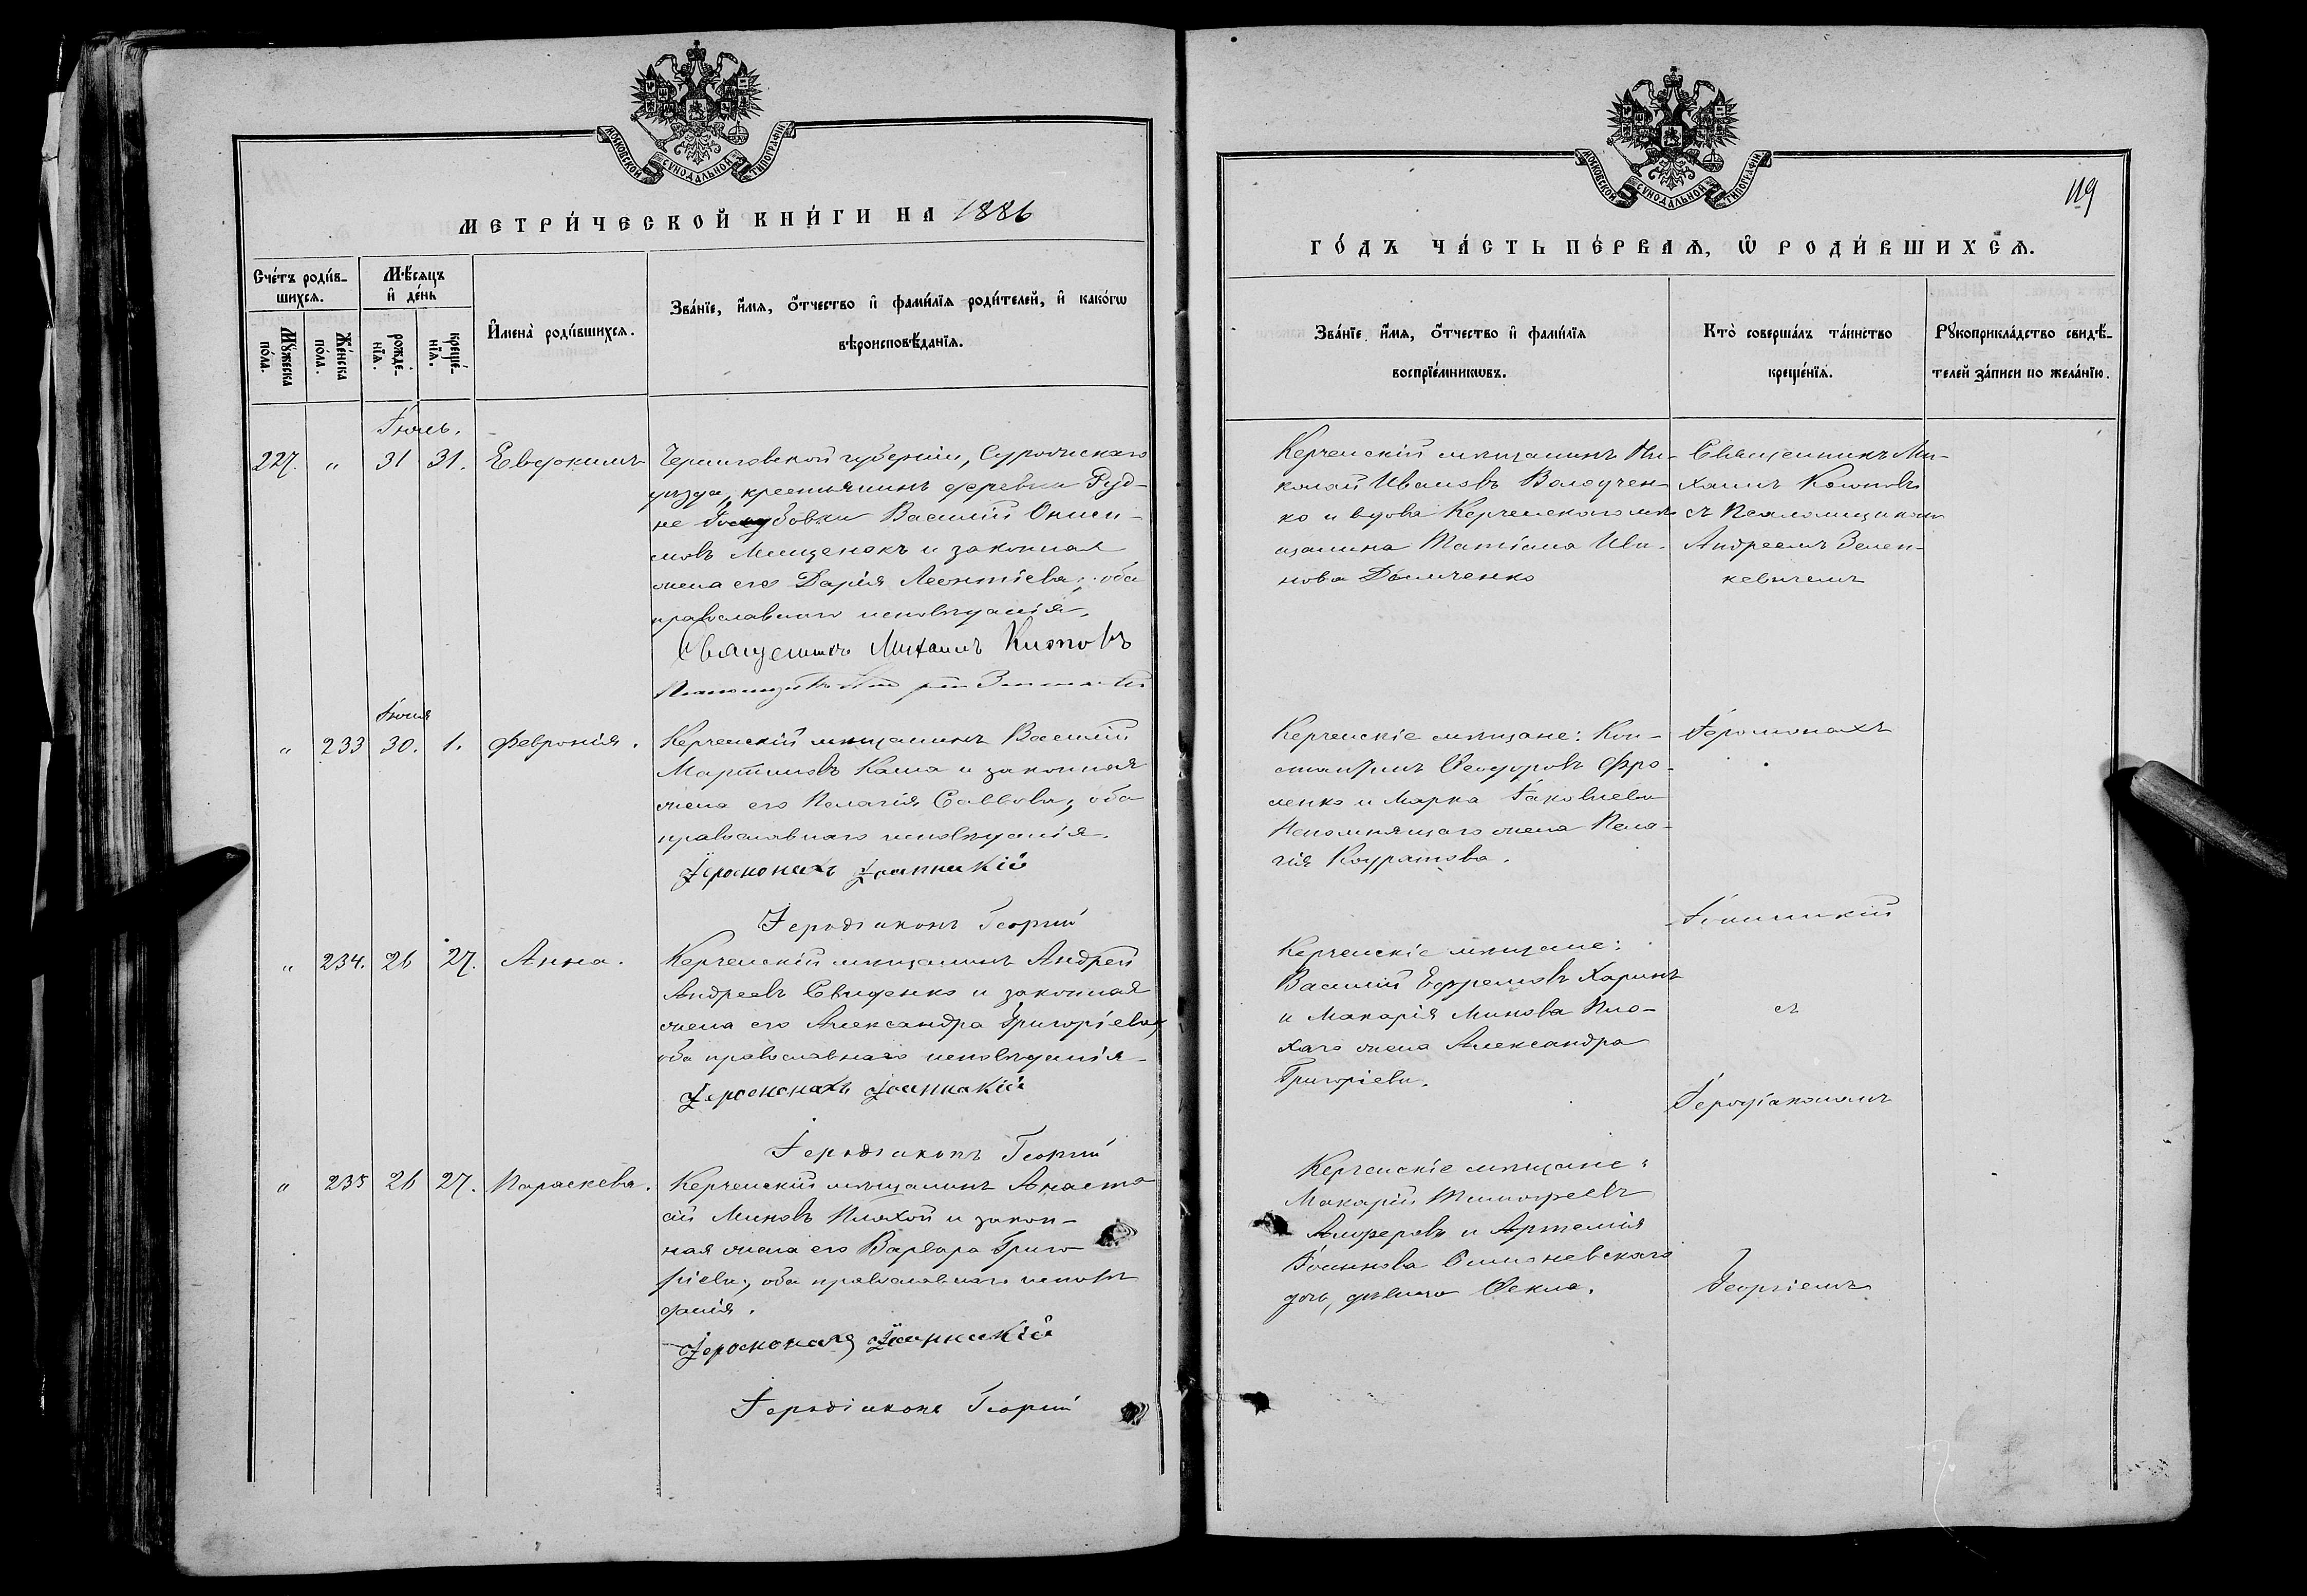 МОСКОВСКОЙ СУНОДАЛЬНОЙ ТИПОГРАФІИ
МЕТРИ́ЧЕСКОЙ КНИ́ГИ НА 1886
Сче́тъ роди́в-
шихсѧ.
Мѣ́сѧцъ
и҆ де́нь
Мꙋ́жеска
по́ла.
Же́нска
по́ла.
рожде́-
нїѧ.
креще́-
нїѧ.
И҆мена̀ роди́вшихсѧ.
Зва́нїе, и҆́мѧ, ѻ҆́тчество и҆ фами́лїѧ роди́телей, и҆ како́гѡ
вѣроисповѣ́данїѧ.
Іюль.
227. " 31 31. Евдокимъ
Черниговской губерніи, Суражскаго
уѣзда, крестьянинъ деревни Руд-
не Василій Ониси-
мовъ Мищенокъ и законная
жена его Дарія Леонтіева; оба
православнаго исповѣданія.
Священникъ Михаилъ Китовъ
Іюня
" 233 30. 1. Февронія.
Керченскій мѣщанинъ Василій
Мартиновъ Каша и законная
жена его Пелагія Саввова; оба
православнаго исповѣданія.
Іеромонахъ Іоанникій
Іеродіаконъ Георгій
" 234. 26 27. Анна.
Керченскій мѣщанинъ Андрей
Андреевъ Свиденко и законная
жена его Александра Григоріева,
оба православнаго исповѣданія
Іеромонахъ Іоанникій
Іеродіаконъ Георгій
" 235 26 27. Параскева.
Керченскій мѣщанинъ Анаста
сій Миновъ Плохой и закон-
ная жена его Варвара Григо
ріева, оба православнаго исповѣ
данія.
Іеромонахъ Іоанникій
Іеродіаконъ Георгій
МОСКОВСКОЙ СУНОДАЛЬНОЙ ТИПОГРАФІИ
119
ГО́ДЪ ЧА́СТЬ ПЕ́РВАѦ, Ѡ҆ РОДИ́ВШИХСѦ.
Зва́нїе и҆́мѧ, ѻ҆́тчество и҆ фами́лїѧ
воспрїе́мникѡвъ.
Кто̀ соверша́лъ та́инство
креще́нїѧ.
Рꙋкоприкла́дство свидѣ́-
телей за́писи по жела́нїю.
Керченскій мѣщанинъ Ни-
колай Ивановъ Володчен-
ко и вдова Керченскаго мѣ
щанина Татіана Ива-
нова Демченко
Священникъ Ми-
хаилъ Китовъ
съ Псаломщикомъ
Андреемъ Зелен-
кевичемъ
Керченскіе мѣщане: Кон-
стантинъ Ѳеодоровъ Фро-
ленко и Марка Іаковлева
Непомнящаго жена Пела-
гія Кондратова.
Іеромонахъ
Іоанникій
Керченскіе мѣщане:
Василій Ефремовъ Харинъ
и Макарія Минова Пло-
хаго жена Александра
Григоріева.
съ
Іеродіакономъ
Керченскіе мѣщане:
Макарій Тимофеевъ
Алферовъ и Артемія
Іоаннова Симоневскаго
дочь, дѣвица Ѳекла.
Георгіемъ